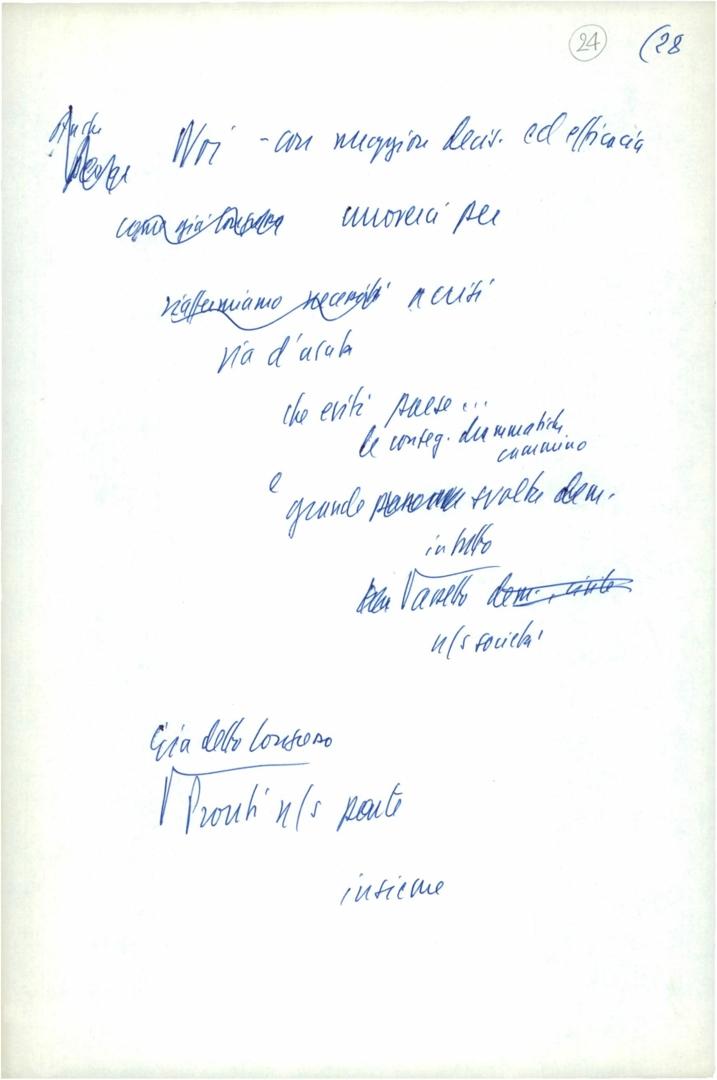 24 (28
Anche
Noi - con maggior decis. ed efficacia
come già Congresso muoverci per
riaffermiamo necessità a crisi
via d'uscita
che eviti paese ...
le conseg. drammatiche
cammino
e
grande svolta dem.
in tutto
l'assetto dem. civile
n/s società
Già detto Congresso
Pronti n/s parte
insieme